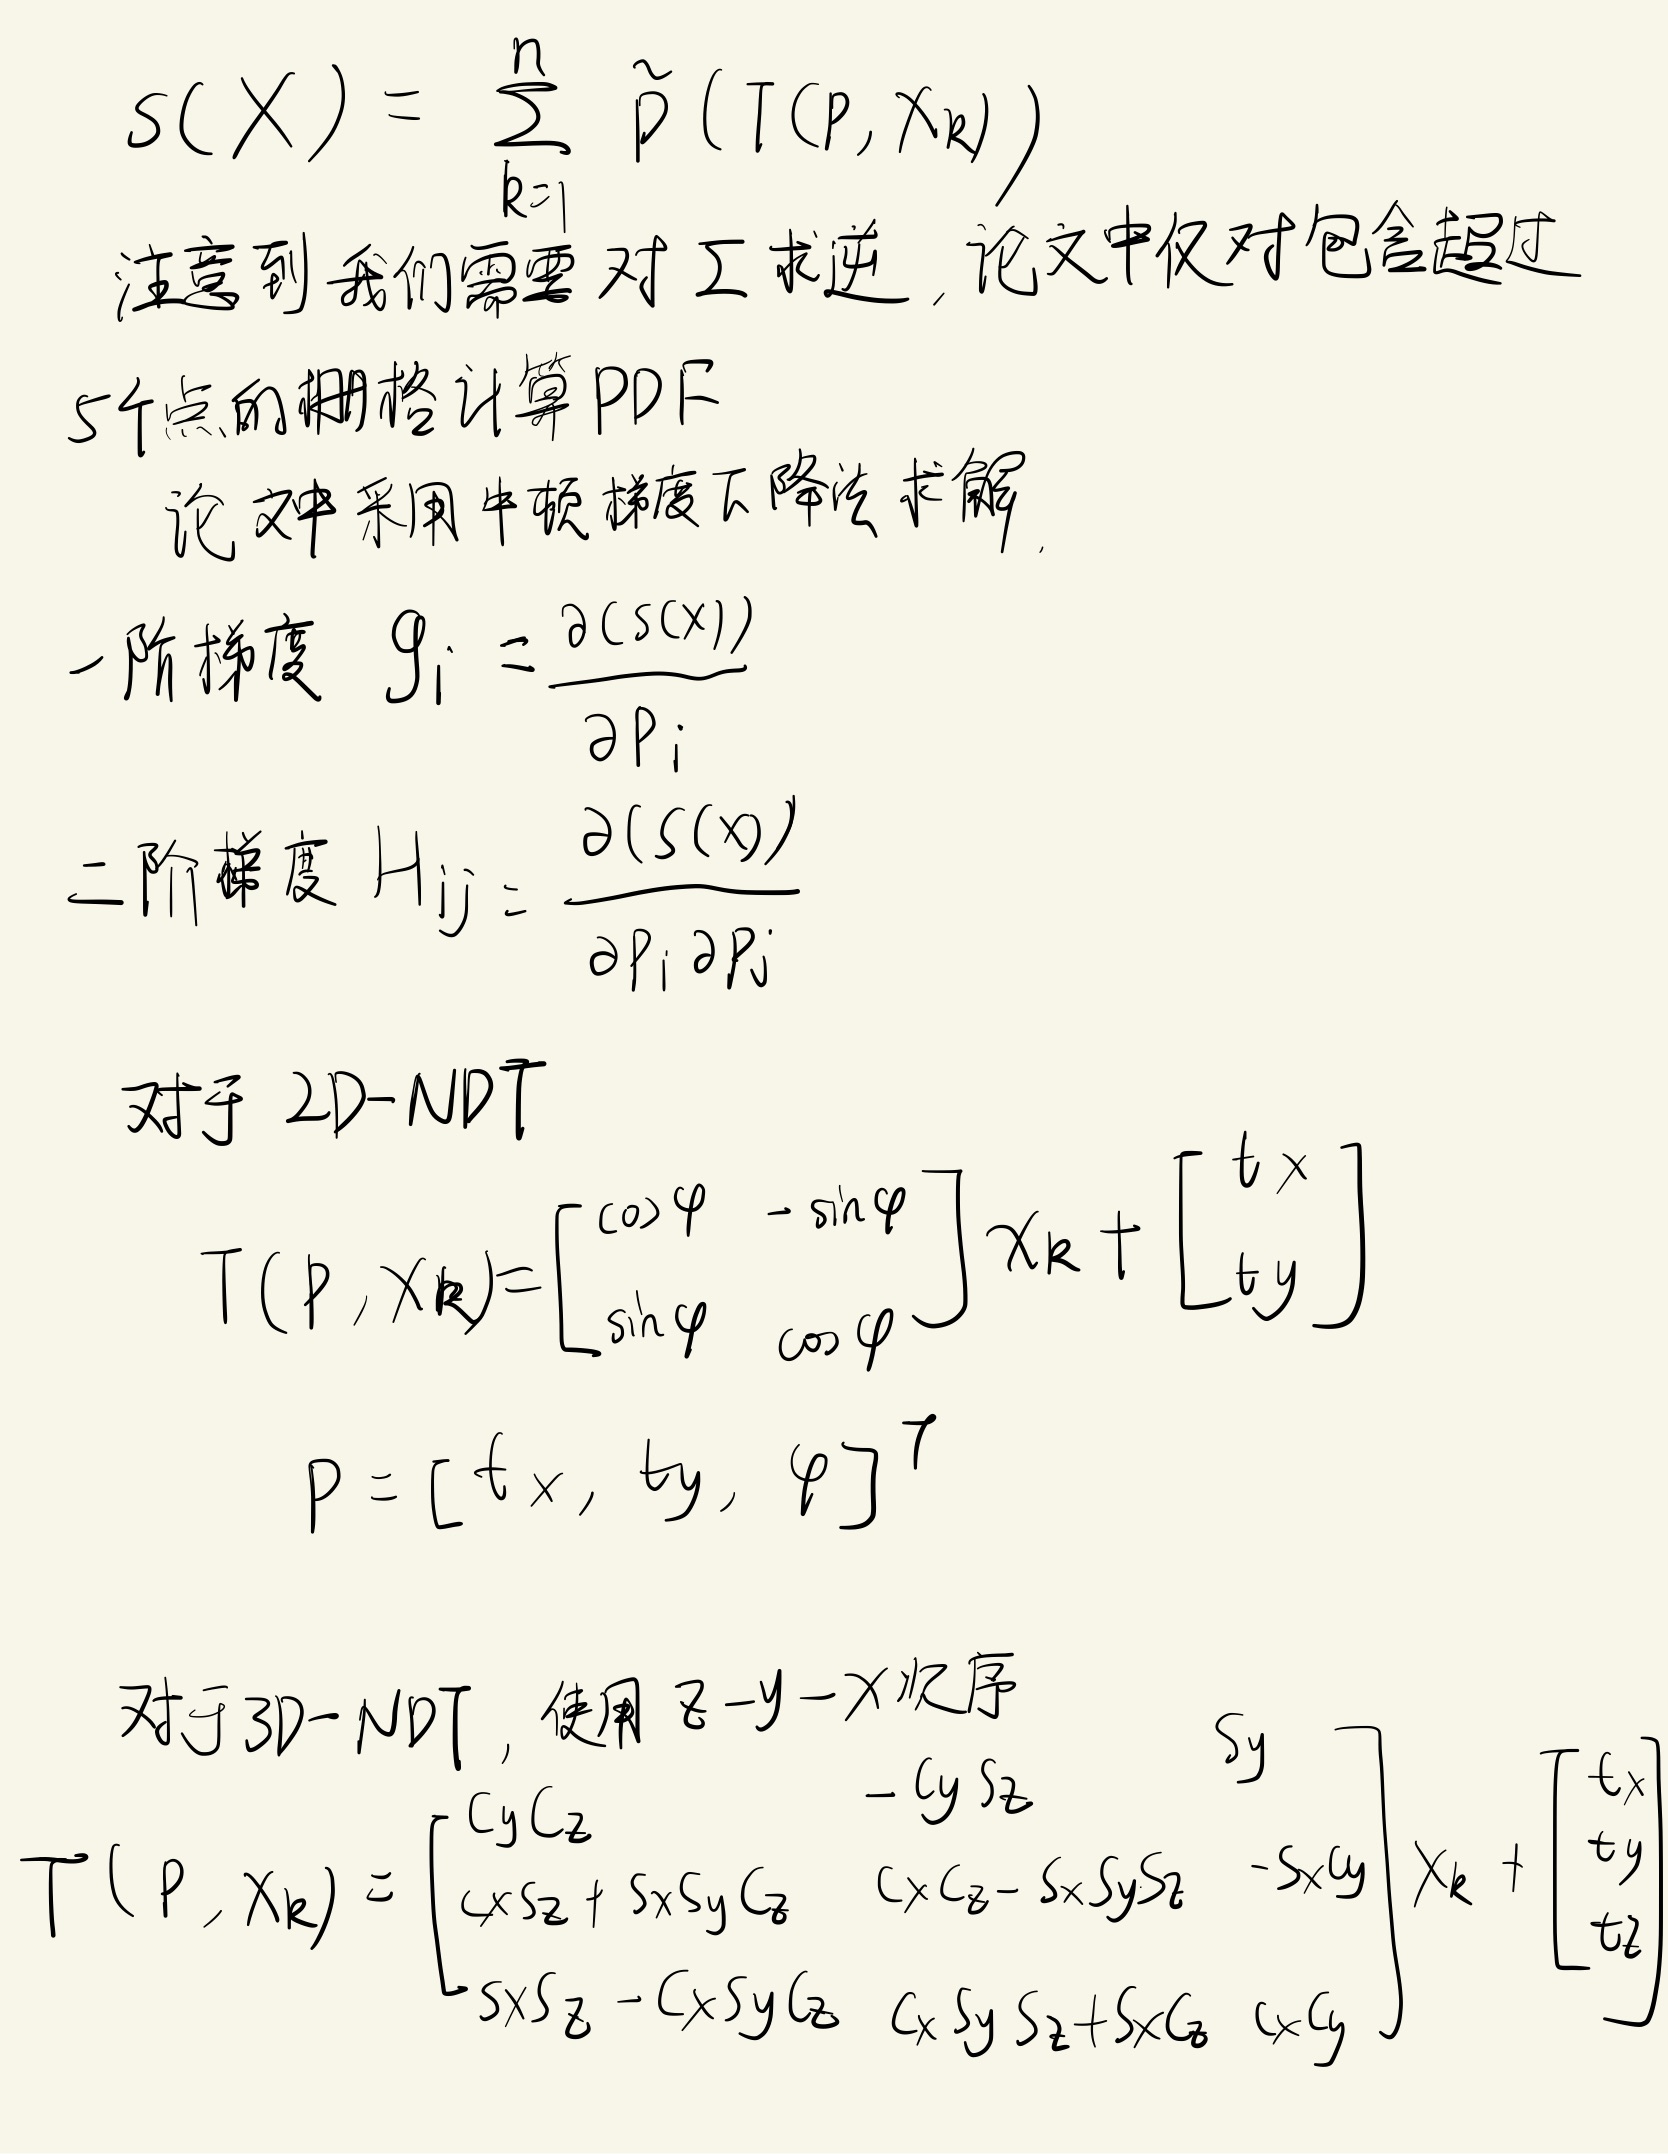 S(X) = \sum_{k=1}^{n} \tilde{p}(T(p, x_k))
注意到我们需要对Σ求逆,论文中仅对包含超过
5个点的栅格计算PDF
论文中采用牛顿梯度下降法求解.
一阶梯度 g_i = \frac{∂(S(X))}{∂p_i}
二阶梯度 H_{ij} = \frac{∂(S(X))}{∂p_i ∂p_j}
对于 2D-NDT
T(p, x_k) = \begin{bmatrix} cosφ & -sinφ \\ sinφ & cosφ \end{bmatrix} x_k + \begin{bmatrix} t_x \\ t_y \end{bmatrix}
p = [t_x, t_y, φ]^T
对于3D-NDT, 使用 z-y-x 顺序
T(p, x_k) = \begin{bmatrix} c_y c_z & -c_y s_z & s_y \\ c_x s_z + s_x s_y c_z & c_x c_z - s_x s_y s_z & -s_x c_y \\ s_x s_z - c_x s_y c_z & c_x s_y s_z + s_x c_z & c_x c_y \end{bmatrix} x_k + \begin{bmatrix} t_x \\ t_y \\ t_z \end{bmatrix}